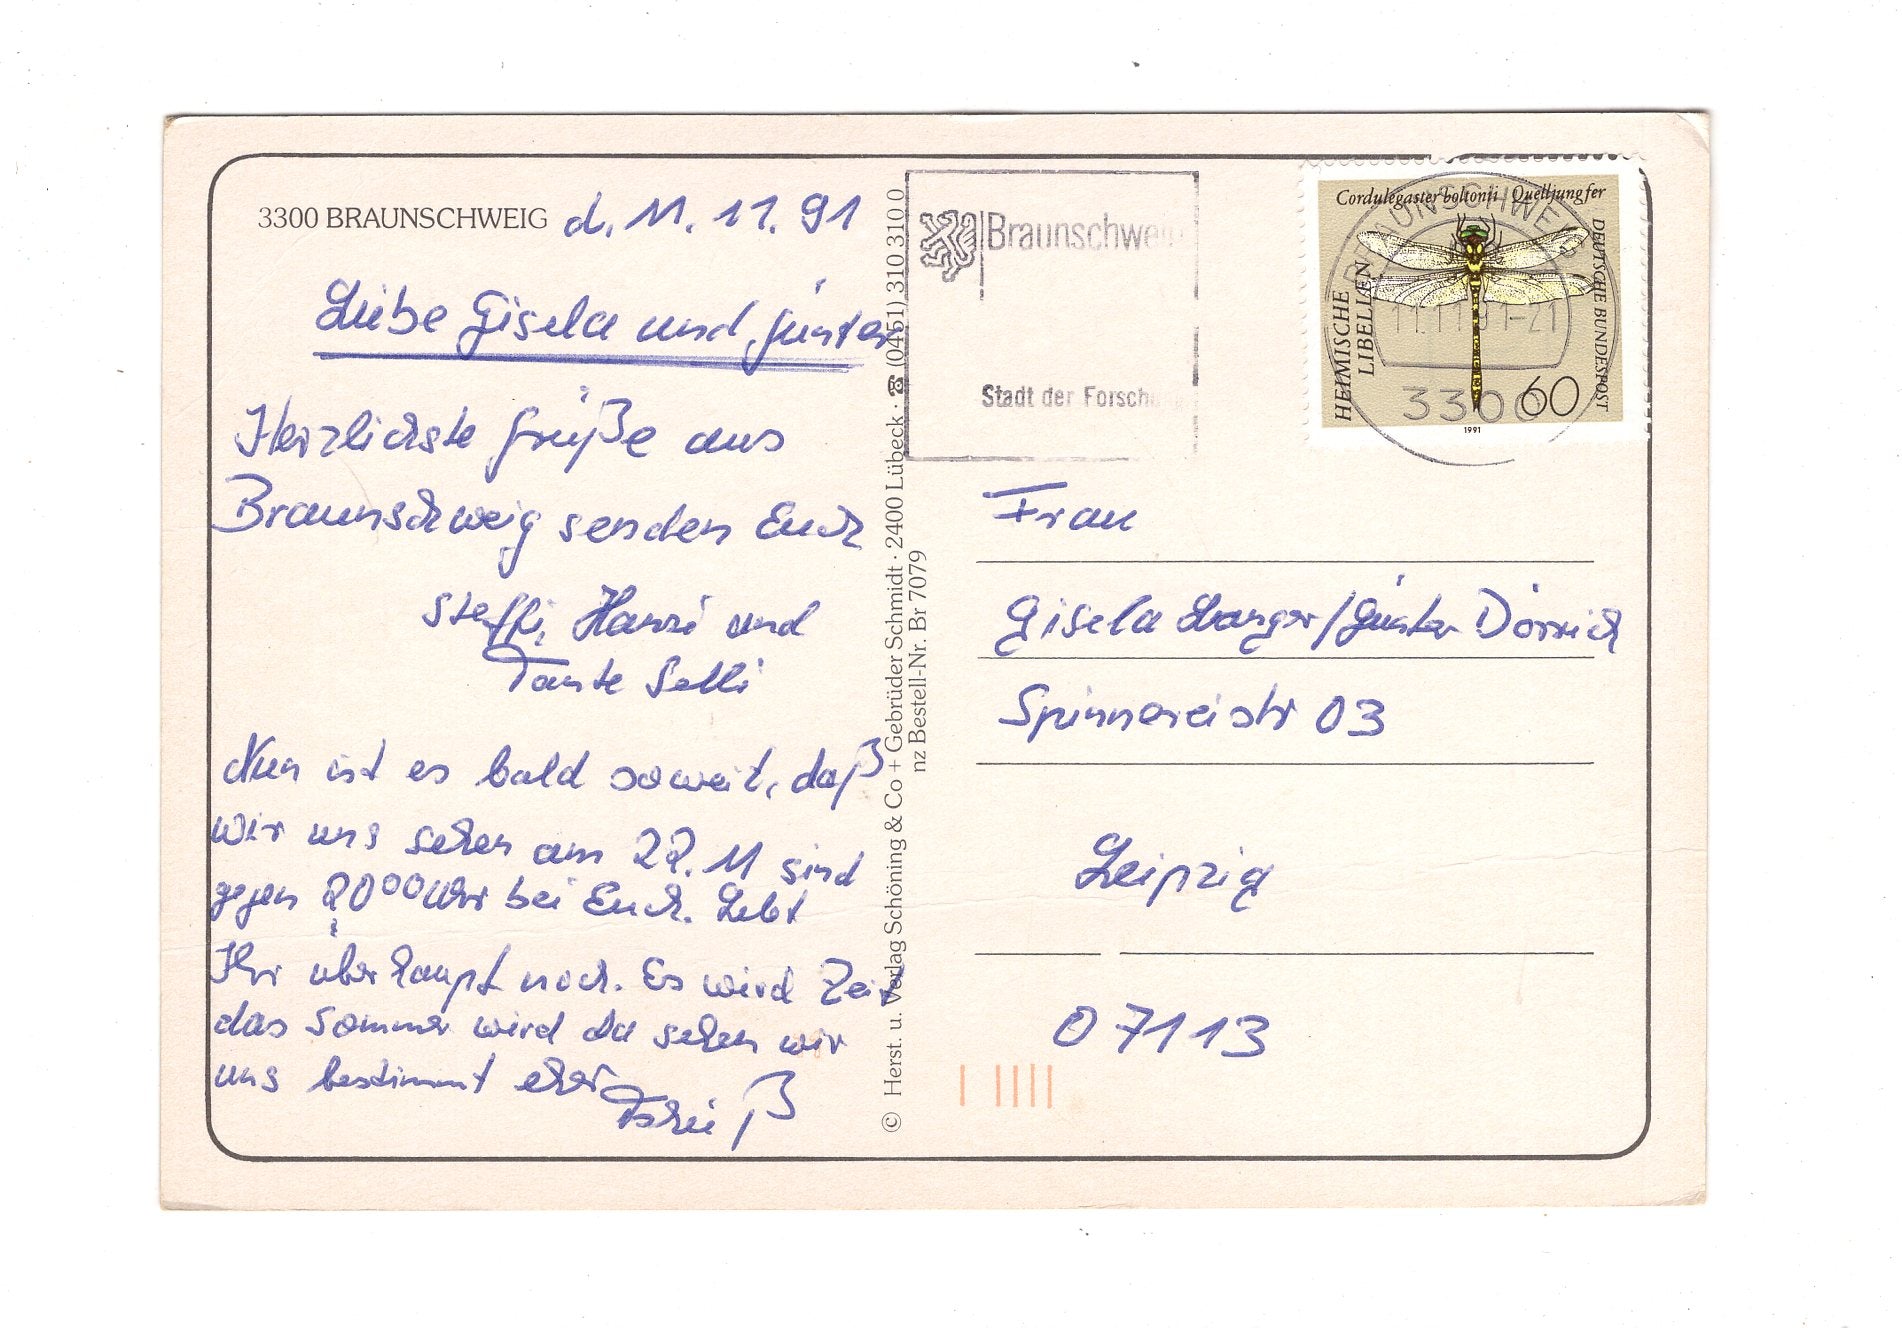 3300 BRAUNSCHWEIG d. 11. 11. 91
Liebe Gisela und Günter
Herzlichste Grüße aus
Braunschweig senden Euch
Steffi, Hansi und
Tante Selli
Nun ist es bald soweit, daß
wir uns sehen am 22. 11 sind
gegen 20⁰⁰ Uhr bei Euch. Lebt
Ihr überhaupt noch. Es wird Zeit
das Sommer wird da sehen wir
uns bestimmt eher
Tschüß
© Herst. u. Verlag Schöning & Co + Gebrüder Schmidt · 2400 Lübeck · ☎ (0451) 310 310 0
nz Bestell-Nr. Br 7079
Braunschwei
Stadt der Forsch
Cordulegaster boltonii Quelljungfer
HEIMISCHE
LIBELLEN
DEUTSCHE BUNDESPOST
60
1991
BRAUNSCHWEIG
11.11.91-21
3300
Frau
Gisela Langer/Günter Dörrich
Spinnereistr 03
Leipzig
07113